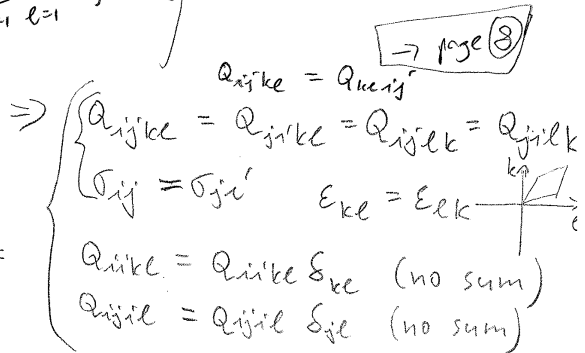 l=1
→ page ⑧
Qijkl = Qklij
⇒ Qijkl = Qjikl = Qijlk = Qjilk
σij = σji εkl = εlk
k
l
=
Qiikl = Qiikl δkl (no sum)
Qijil = Qijil δjl (no sum)